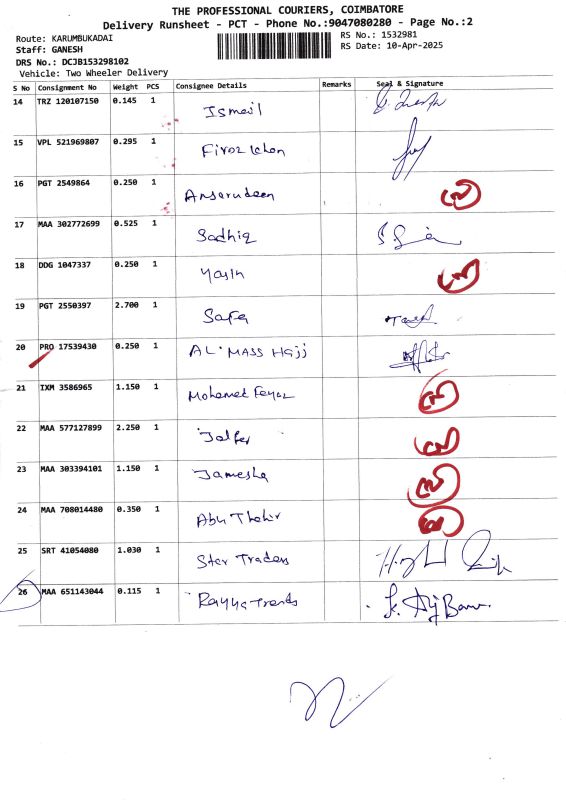 THE PROFESSIONAL COURIERS, COIMBATORE
Delivery Runsheet - PCT - Phone No.:9047080280 - Page No.:2
Route: KARUMBUKADAI RS No.: 1532981
Staff: GANESH RS Date: 10-Apr-2025
DRS No.: DCJB153298102
Vehicle: Two Wheeler Delivery
S No Consignment No Weight PCS Consignee Details Remarks Seal & Signature
14 TRZ 120107150 0.145 1 Ismail
15 VPL 521969807 0.295 1 Firoz khan
16 PGT 2549864 0.250 1 Ansarudeen
17 MAA 302772699 0.525 1 Sadhiq
18 DDG 1047337 0.250 1 Yasin
19 PGT 2550397 2.700 1 Safa
20 PRO 17539430 0.250 1 AL.MASS Hajj
21 IXM 3586965 1.150 1 Mohamed
22 MAA 577127899 2.250 1 Jaffer
23 MAA 303394101 1.150 1 Jamesha
24 MAA 708014480 0.350 1 Abu Thahir
25 SRT 41054080 1.030 1 Star Traders
26 MAA 651143044 0.115 1 Rayya Trends